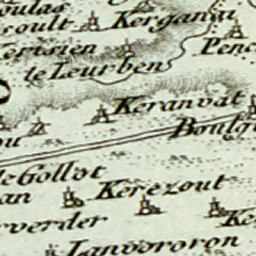 oulas
scoult
Kerganai
torisien
Penc
le Leurben
Keranvat
Boulg
ou
le Gollot
an
Kerezout
verder
Ke
Lanvororon